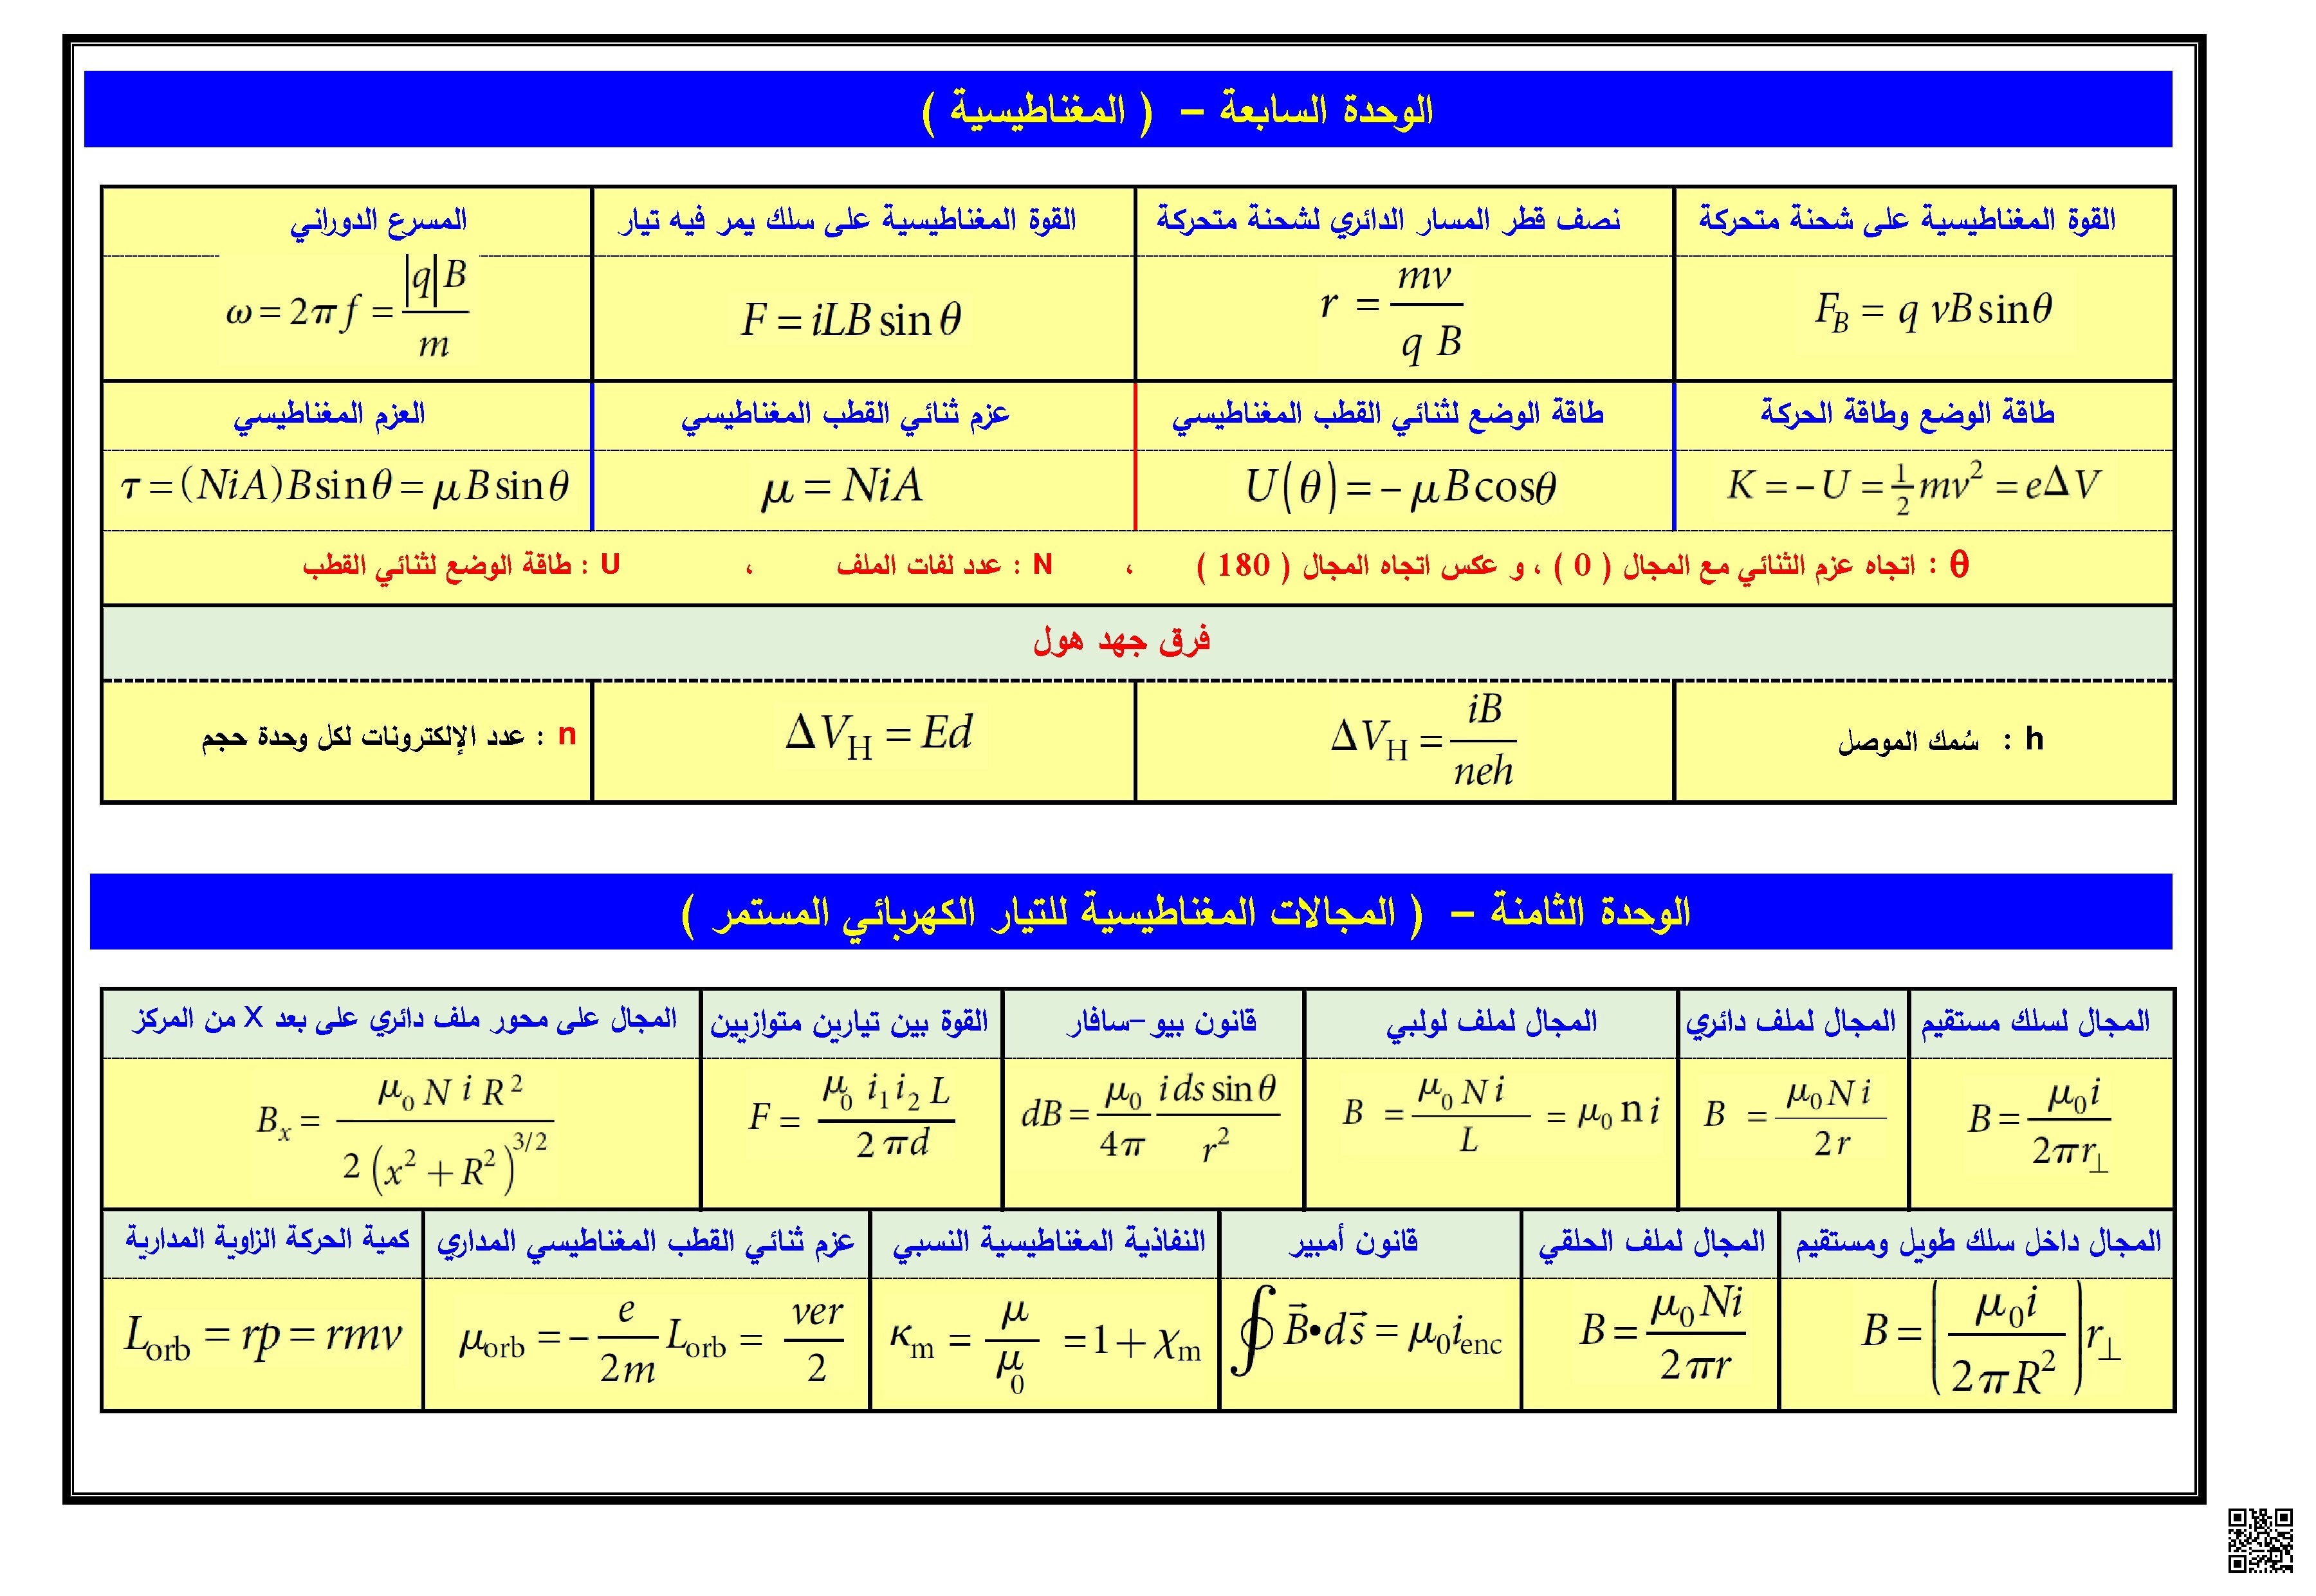 الوحدة السابعة – ( المغناطيسية )
القوة المغناطيسية على شحنة متحركة
نصف قطر المسار الدائري لشحنة متحركة
القوة المغناطيسية على سلك يمر فيه تيار
المسرع الدوراني
F_B = q vB sinθ
r = mv / q B
F = iLB sin θ
ω = 2π f = |q| B / m
طاقة الوضع وطاقة الحركة
طاقة الوضع لثنائي القطب المغناطيسي
عزم ثنائي القطب المغناطيسي
العزم المغناطيسي
K = −U = ½ mv² = eΔV
U(θ) = − μB cosθ
μ = NiA
τ = (NiA)B sin θ = μB sin θ
θ : اتجاه عزم الثنائي مع المجال ( 0 ) ، و عكس اتجاه المجال ( 180 ) ، N : عدد لفات الملف ، U : طاقة الوضع لثنائي القطب
فرق جهد هول
h : سُمك الموصل
ΔV_H = iB / neh
ΔV_H = Ed
n : عدد الإلكترونات لكل وحدة حجم
الوحدة الثامنة – ( المجالات المغناطيسية للتيار الكهربائي المستمر )
المجال لسلك مستقيم
المجال لملف دائري
المجال لملف لولبي
قانون بيو –سافار
القوة بين تيارين متوازيين
المجال على محور ملف دائري على بعد X من المركز
B = μ₀i / 2πr⊥
B = μ₀N i / 2r
B = μ₀ N i / L = μ₀ n i
dB = μ₀ / 4π i ds sin θ / r²
F = μ₀ i₁ i₂ L / 2 πd
Bₓ = μ₀ N i R² / 2 (x² + R²)^3/2
المجال داخل سلك طويل ومستقيم
المجال لملف الحلقي
قانون أمبير
النفاذية المغناطيسية النسبي
عزم ثنائي القطب المغناطيسي المداري
كمية الحركة الزاوية المدارية
B = (μ₀i / 2πR²) r⊥
B = μ₀ Ni / 2πr
∮ B⃗•ds⃗ = μ₀i_enc
κ_m = μ / μ₀ = 1 + χ_m
μ_orb = − e / 2m L_orb = ver / 2
L_orb = rp = rmv